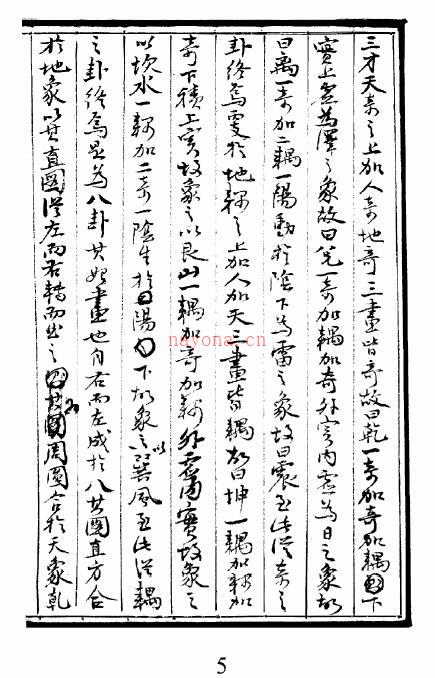 三才天奇之上加人奇地奇三畫皆奇故曰乾一奇加奇加耦下
實上虛為澤之象故曰兌一奇加耦加奇外實內虛為日之象故
曰離一奇加二耦一陽動於陰下為雷之象故曰震至此從奇之
卦終焉更於地耦之上加人加天三畫皆耦故曰坤一耦加耦加
奇下積上實故象之以艮山一耦加奇加耦外虛內實故象之
以坎水一耦加二奇一陰生於陽下故象之以巽風至此從耦
之卦終焉是為八卦其始畫也自右而左成於八其圖直方合
於地象以其直圖從左而右轉而出之為圖周圓合於天象乾
nayona.cn
5